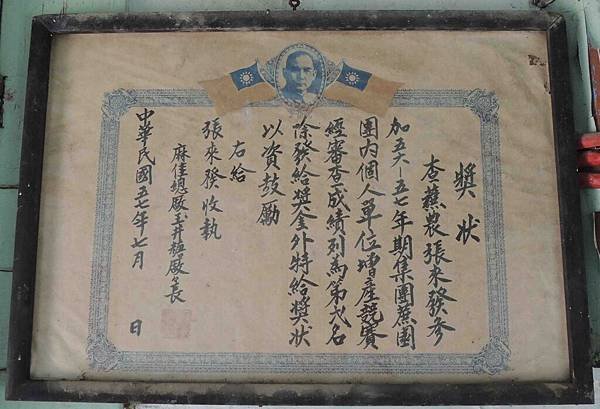 獎狀
查蔗農張來發參
加五六—五七年期集團蔗園
團內個人單位增產競賽
經審查成績列為第弍名
除發給獎金外特給獎狀
以資鼓勵
右給
張來發收執
麻佳總廠玉井糖廠廠長
中華民國五七年七月　日